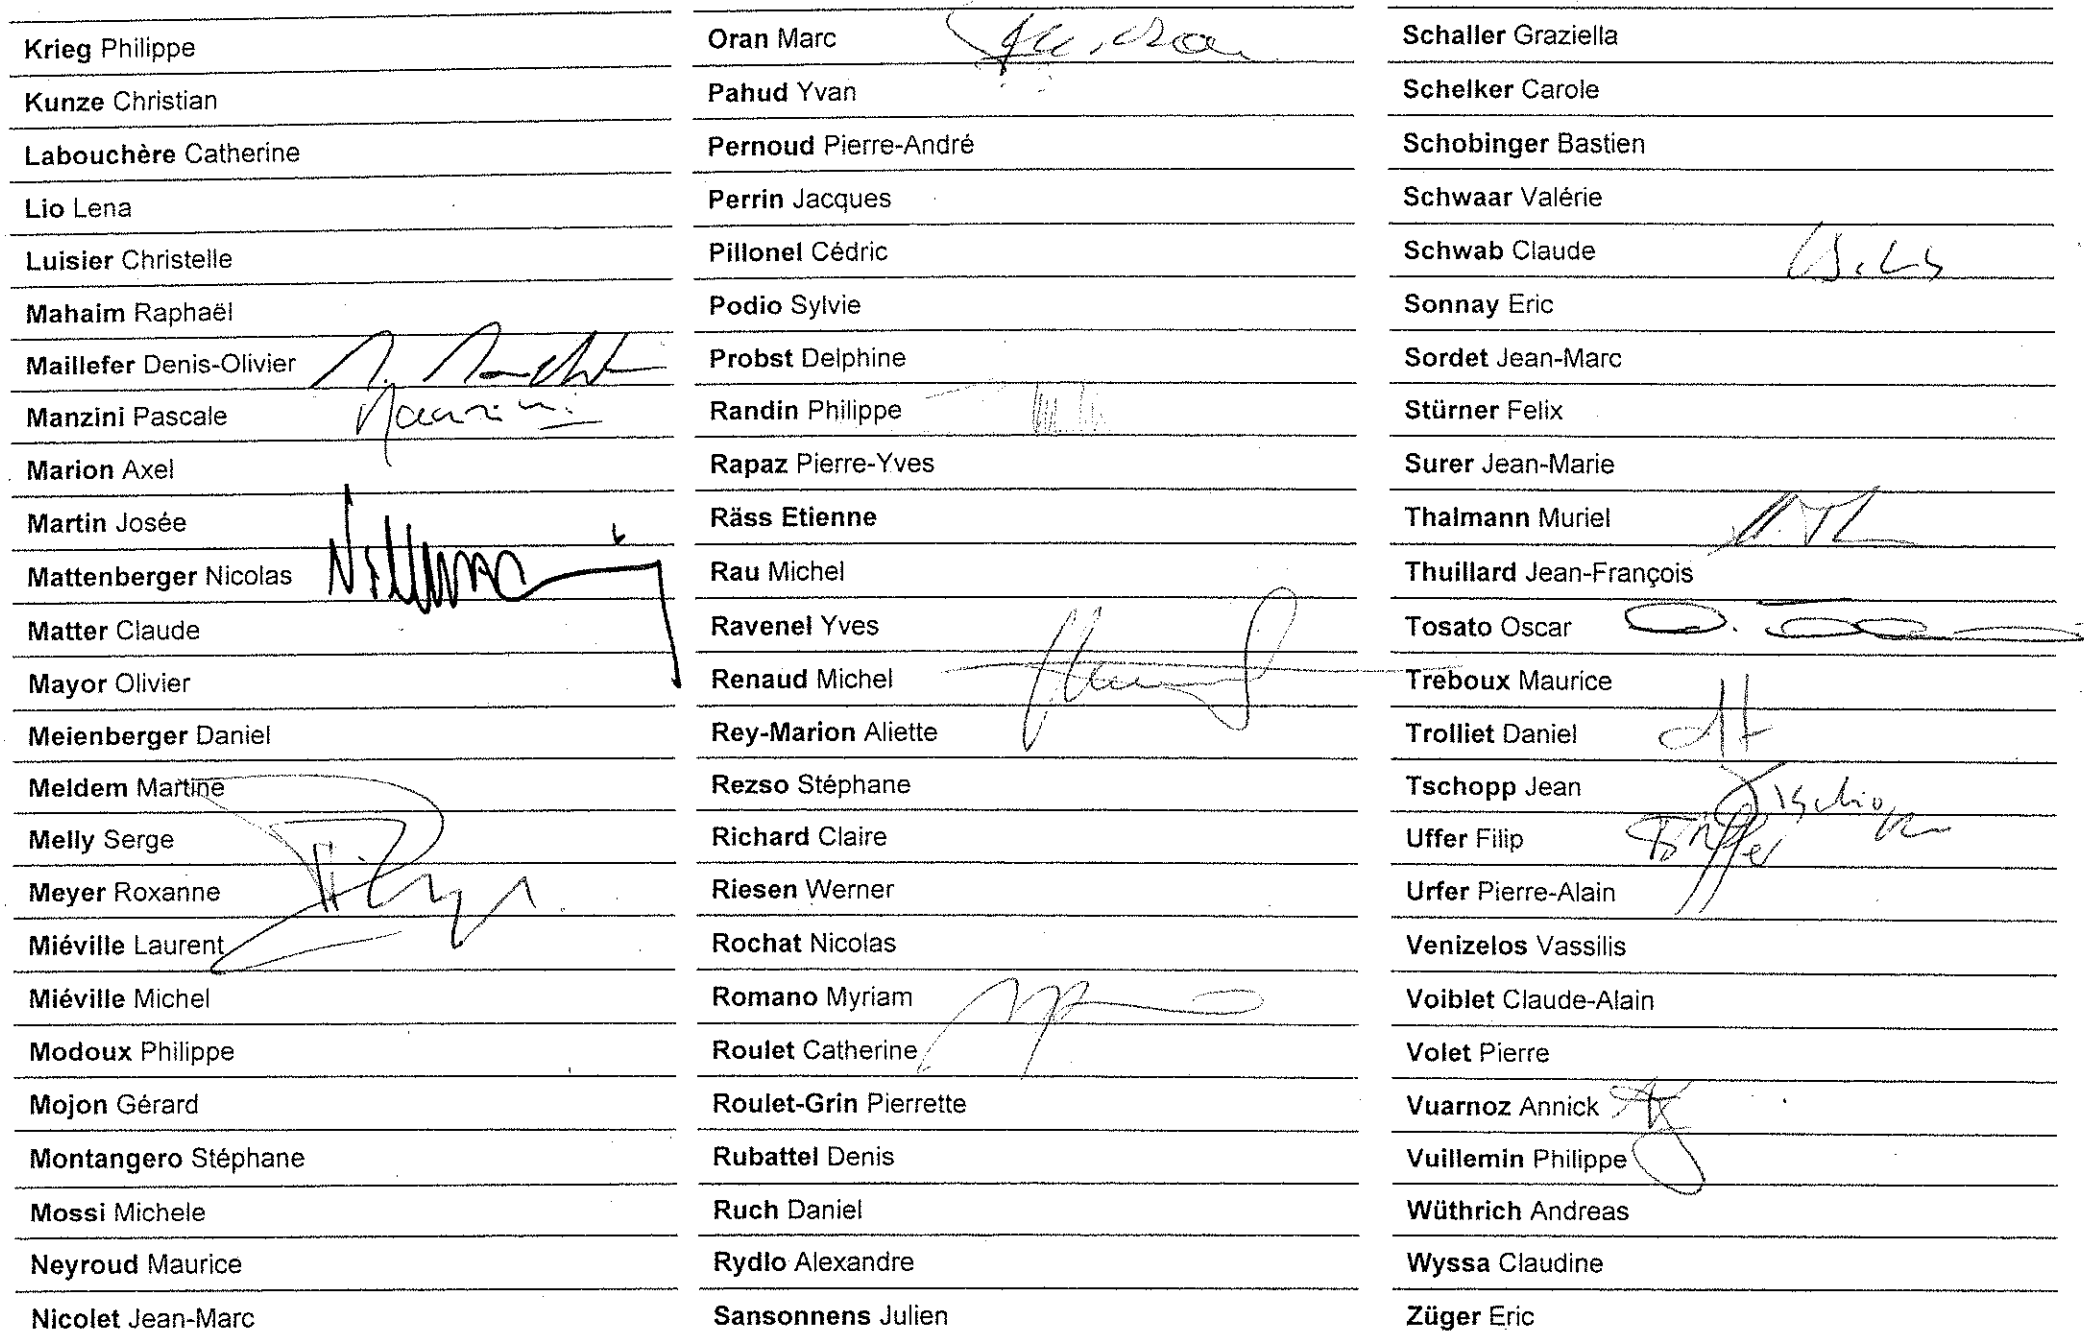 Krieg Philippe
Kunze Christian
Labouchère Catherine
Lio Lena
Luisier Christelle
Mahaim Raphaël
Maillefer Denis-Olivier
Manzini Pascale Manzini
Marion Axel
Martin Josée
Mattenberger Nicolas
Matter Claude
Mayor Olivier
Meienberger Daniel
Meldem Martine
Melly Serge
Meyer Roxanne
Miéville Laurent
Miéville Michel
Modoux Philippe
Mojon Gérard
Montangero Stéphane
Mossi Michele
Neyroud Maurice
Nicolet Jean-Marc
Oran Marc
Pahud Yvan
Pernoud Pierre-André
Perrin Jacques
Pillonel Cédric
Podio Sylvie
Probst Delphine
Randin Philippe
Rapaz Pierre-Yves
Räss Etienne
Rau Michel
Ravenel Yves
Renaud Michel
Rey-Marion Aliette
Rezso Stéphane
Richard Claire
Riesen Werner
Rochat Nicolas
Romano Myriam
Roulet Catherine
Roulet-Grin Pierrette
Rubattel Denis
Ruch Daniel
Rydlo Alexandre
Sansonnens Julien
Schaller Graziella
Schelker Carole
Schobinger Bastien
Schwaar Valérie
Schwab Claude
Sonnay Eric
Sordet Jean-Marc
Stürner Felix
Surer Jean-Marie
Thalmann Muriel
Thuillard Jean-François
Tosato Oscar
Treboux Maurice
Trolliet Daniel
Tschopp Jean Tschopp
Uffer Filip
Urfer Pierre-Alain
Venizelos Vassilis
Voiblet Claude-Alain
Volet Pierre
Vuarnoz Annick
Vuillemin Philippe
Wüthrich Andreas
Wyssa Claudine
Züger Eric